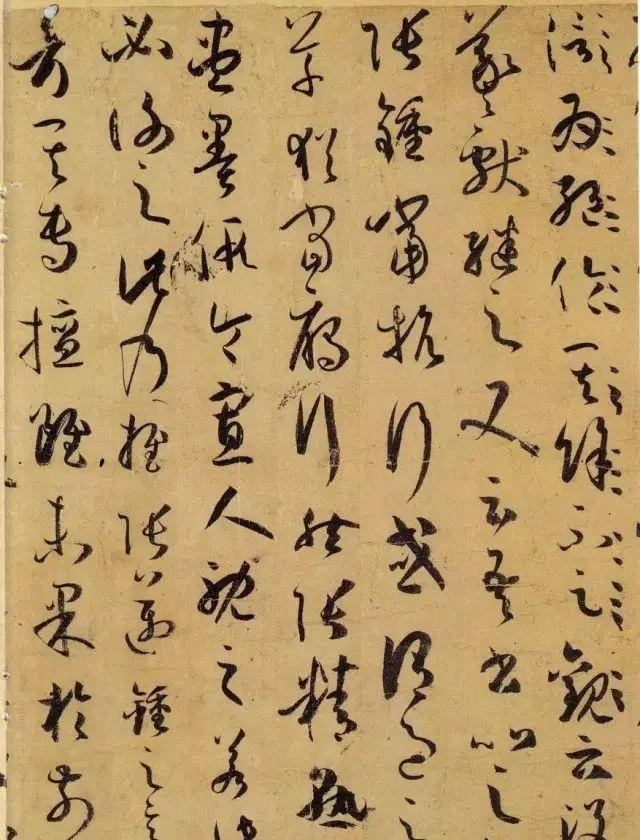 為絕倫其餘不足觀云沒
羲獻繼之又云吾書比之
張鍾當抗行或謂過之
草猶當雁行然張精熟
盡墨假令寡人耽之若此
必謝之此乃推張邁鍾之意
考其專擅雖未果於前